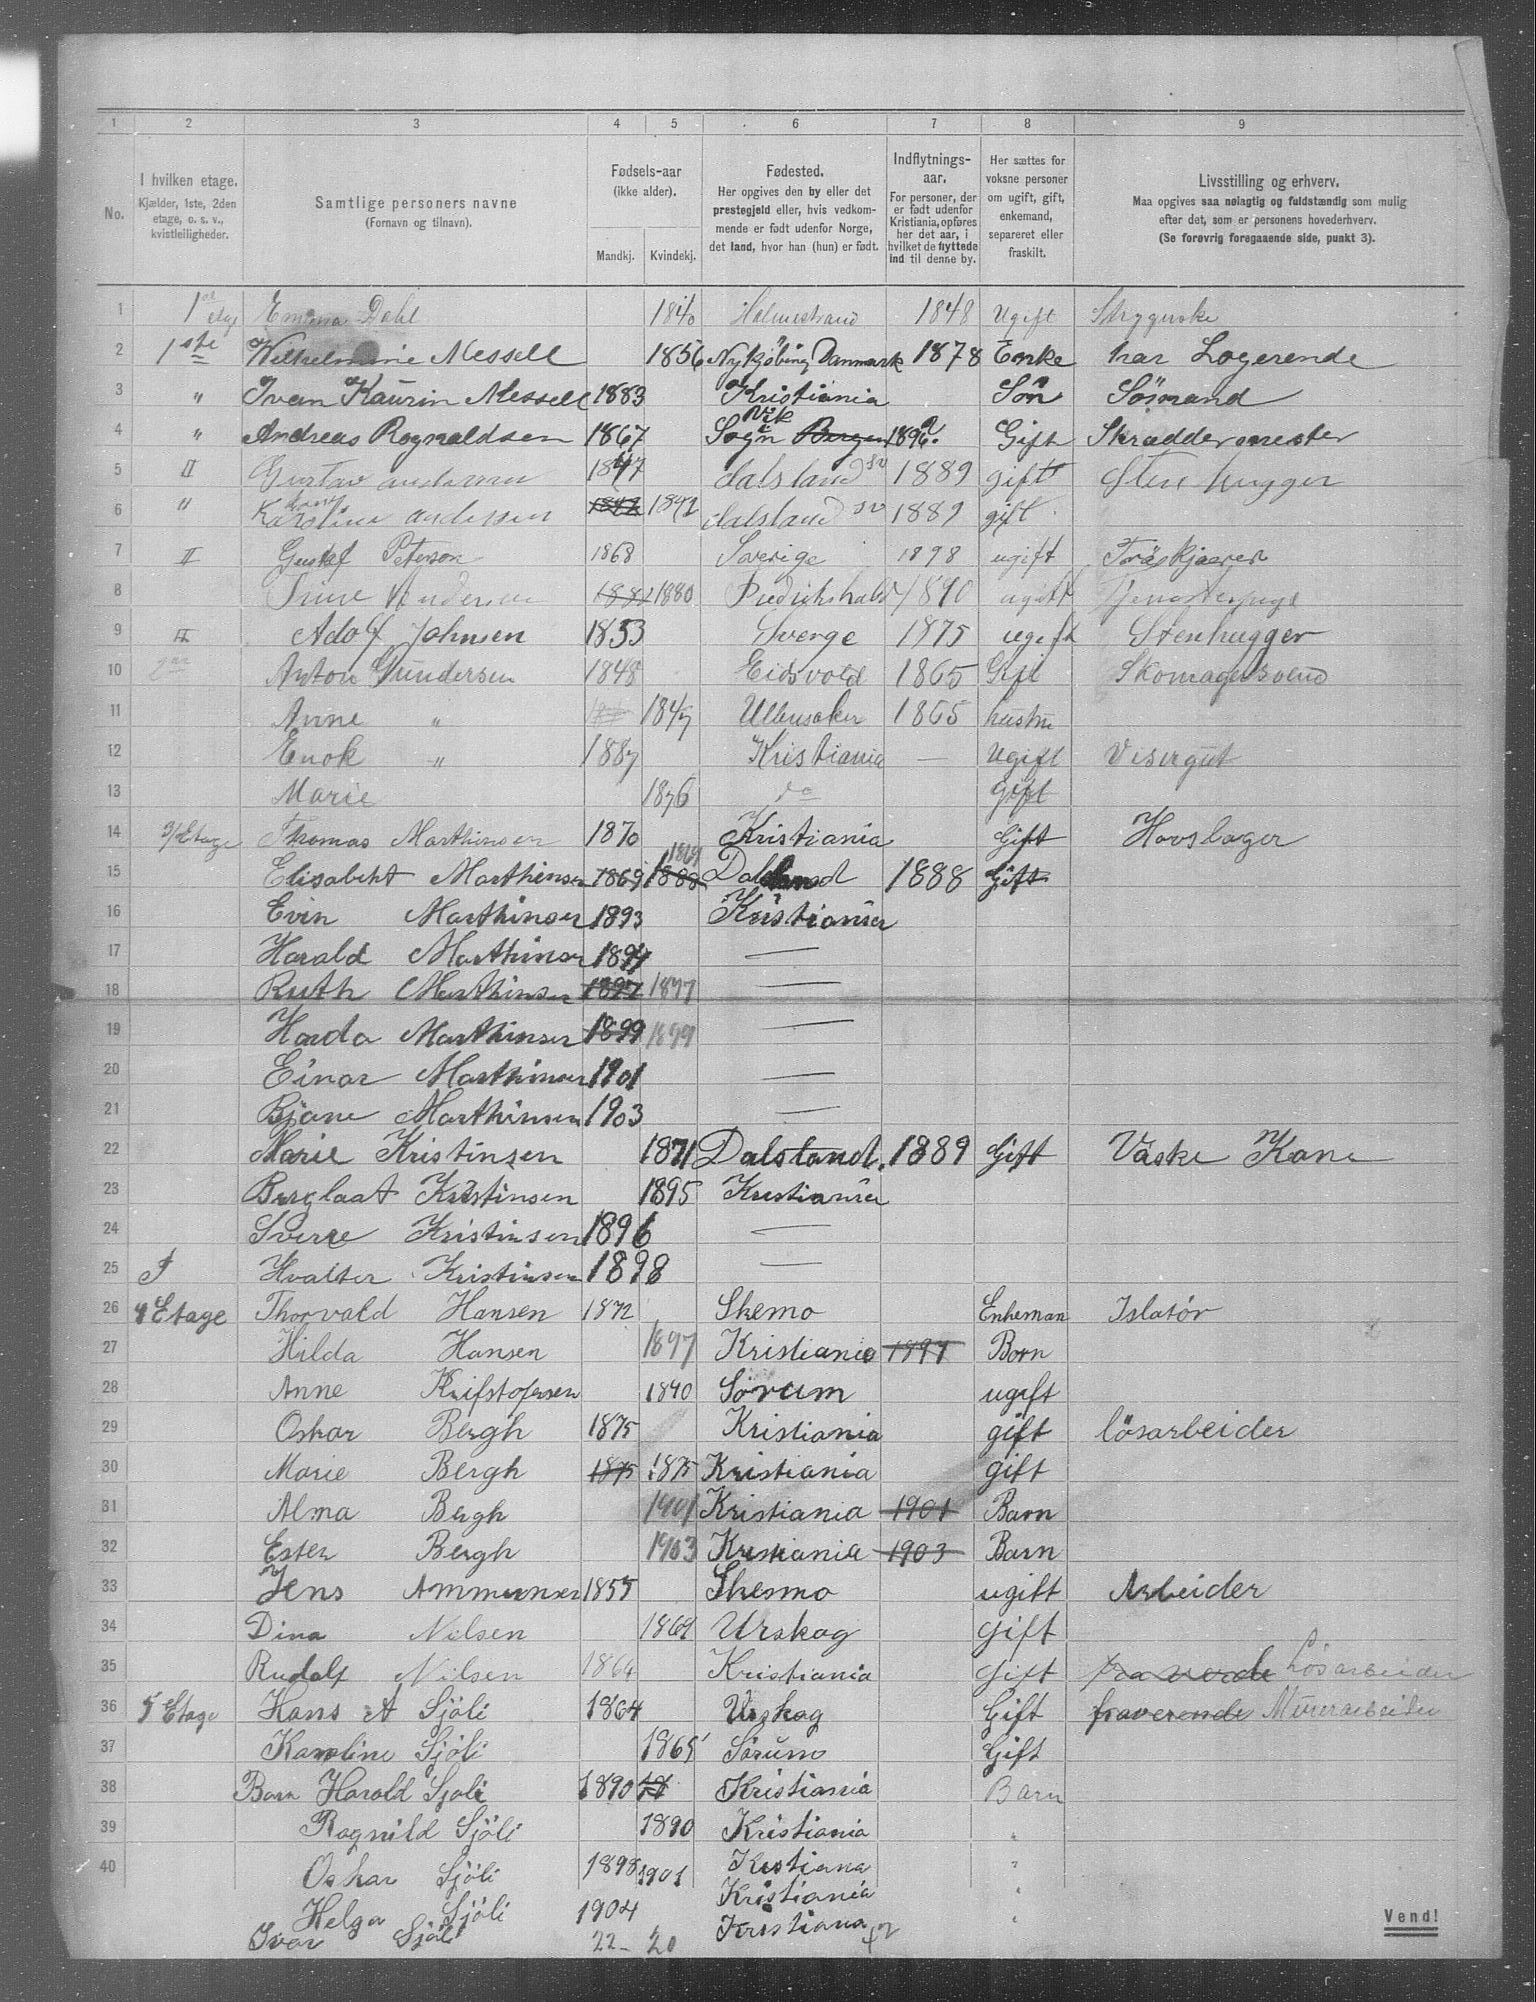 1 2 3 4 5 6 7 8 9
No.
I hvilken etage.
Kjælder, 1ste, 2den
etage, o. s. v.,
kvistleiligheder.
Samtlige personers navne
(Fornavn og tilnavn).
Fødsels-aar
(ikke alder).
Mandkj. Kvindekj.
Fødested.
Her opgives den by eller det
prestegjeld eller, hvis vedkom-
mende er født udenfor Norge,
det land, hvor han (hun) er født.
Indflytnings-
aar.
For personer, der
er født udenfor
Kristiania, opføres
her det aar, i
hvilket de flyttede
ind til denne by.
Her sættes for
voksne personer
om ugift, gift,
enkemand,
separeret eller
fraskilt.
Livsstilling og erhverv.
Maa opgives saa nøiagtig og fuldstændig som mulig
efter det, som er personens hovederhverv.
(Se forøvrig foregaaende side, punkt 3).
1 Emma Dahl 1840 Holmestrand 1848 Ugift
2 1ste Wilhelmine Messell 1856 Nykjöbing Danmark 1878 Enke har Logerende
3 " Ivan Kaurin Messell 1883 Kristiania Sön Sömand
4 " Andreas Rognaldsen 1867 Vik Sogn Bergen Gift Skræddermester
5 II Gustav andersen 1847 dalsland sv 1889 gift Sten hugger
6 " Karoline andersen 1842 1842 dalsland sv 1889 gift
7 II Gustaf Peterson 1868 Sverige 1898 ugift Träskjærer
8 Andersen 1880 Fredrikshald 1890 ugift
9 II Adolf Johnsen 1853 Sverge 1875 ugift Stenhugger
10 Anton Gundersen 1848 Eidsvold 1865 Gift Skomagersvend
11 Anne " 1847 Ullensaker 1865 hustru
12 Enok " 1887 Kristiania — Ugift Visergut
13 Marie 1876 do Gift
14 3/Etage Thomas Marthinsen 1870 Kristiania Gift Hovslager
15 Elisabeht Marthinsen 1869 1888 1869 Dalsland 1888 Gift
16 Evin Marthinsen 1893 Kristiania
17 Harald Marthinsen 1894 —
18 Ruth Marthinsen 1897 1897 —
19 Harda Marthinsen 1899 1899 —
20 Einar Marthinsen 1901 —
21 Bjane Marthinsen 1903 —
22 Marie Kristinsen 1871 Dalsland. 1889 Gift Vaske Kone
23 Berglaat Kristinsen 1895 Kristiania
24 Sverre Kristinsen 1896 —
25 Hvalter Kristinsen 1898 —
26 4 Etage Thorvald Hansen 1872 Skemo Enkeman Islatör
27 Hilda Hansen 1897 Kristiania 1897 Barn
28 Anne Krifstofersen 1840 Sörum ugift
29 Oskar Bergh 1875 Kristiania gift lösarbeider
30 Marie Bergh 1875 1875 Kristiania gift
31 Alma Bergh 1901 Kristiania 1901 Barn
32 Ester Bergh 1903 Kristiania 1903 Barn
33 Jens Ammunsen 1855 Skesmo ugift Arbeider
34 Dina Nilsen 1869 Urskog Gift
35 Rudolf Nilsen 1864 Kristiania Gift Lösarbeider
36 5 Etage Hans A Sjöli 1864 Urskog Gift fraverende Murerarbeider
37 Karoline Sjöli 1865 Sörum Gift
38 Barn Harold Sjöli 1890 Kristiania Barn
39 Ragnild Sjöli 1890 Kristiania "
40 Oskar Sjöli 1898 1901 Kristiana "
Helga Sjöli 1904 Kristiania "
Ivar Sjöli Kristiana
22 - 20 42
Vend!